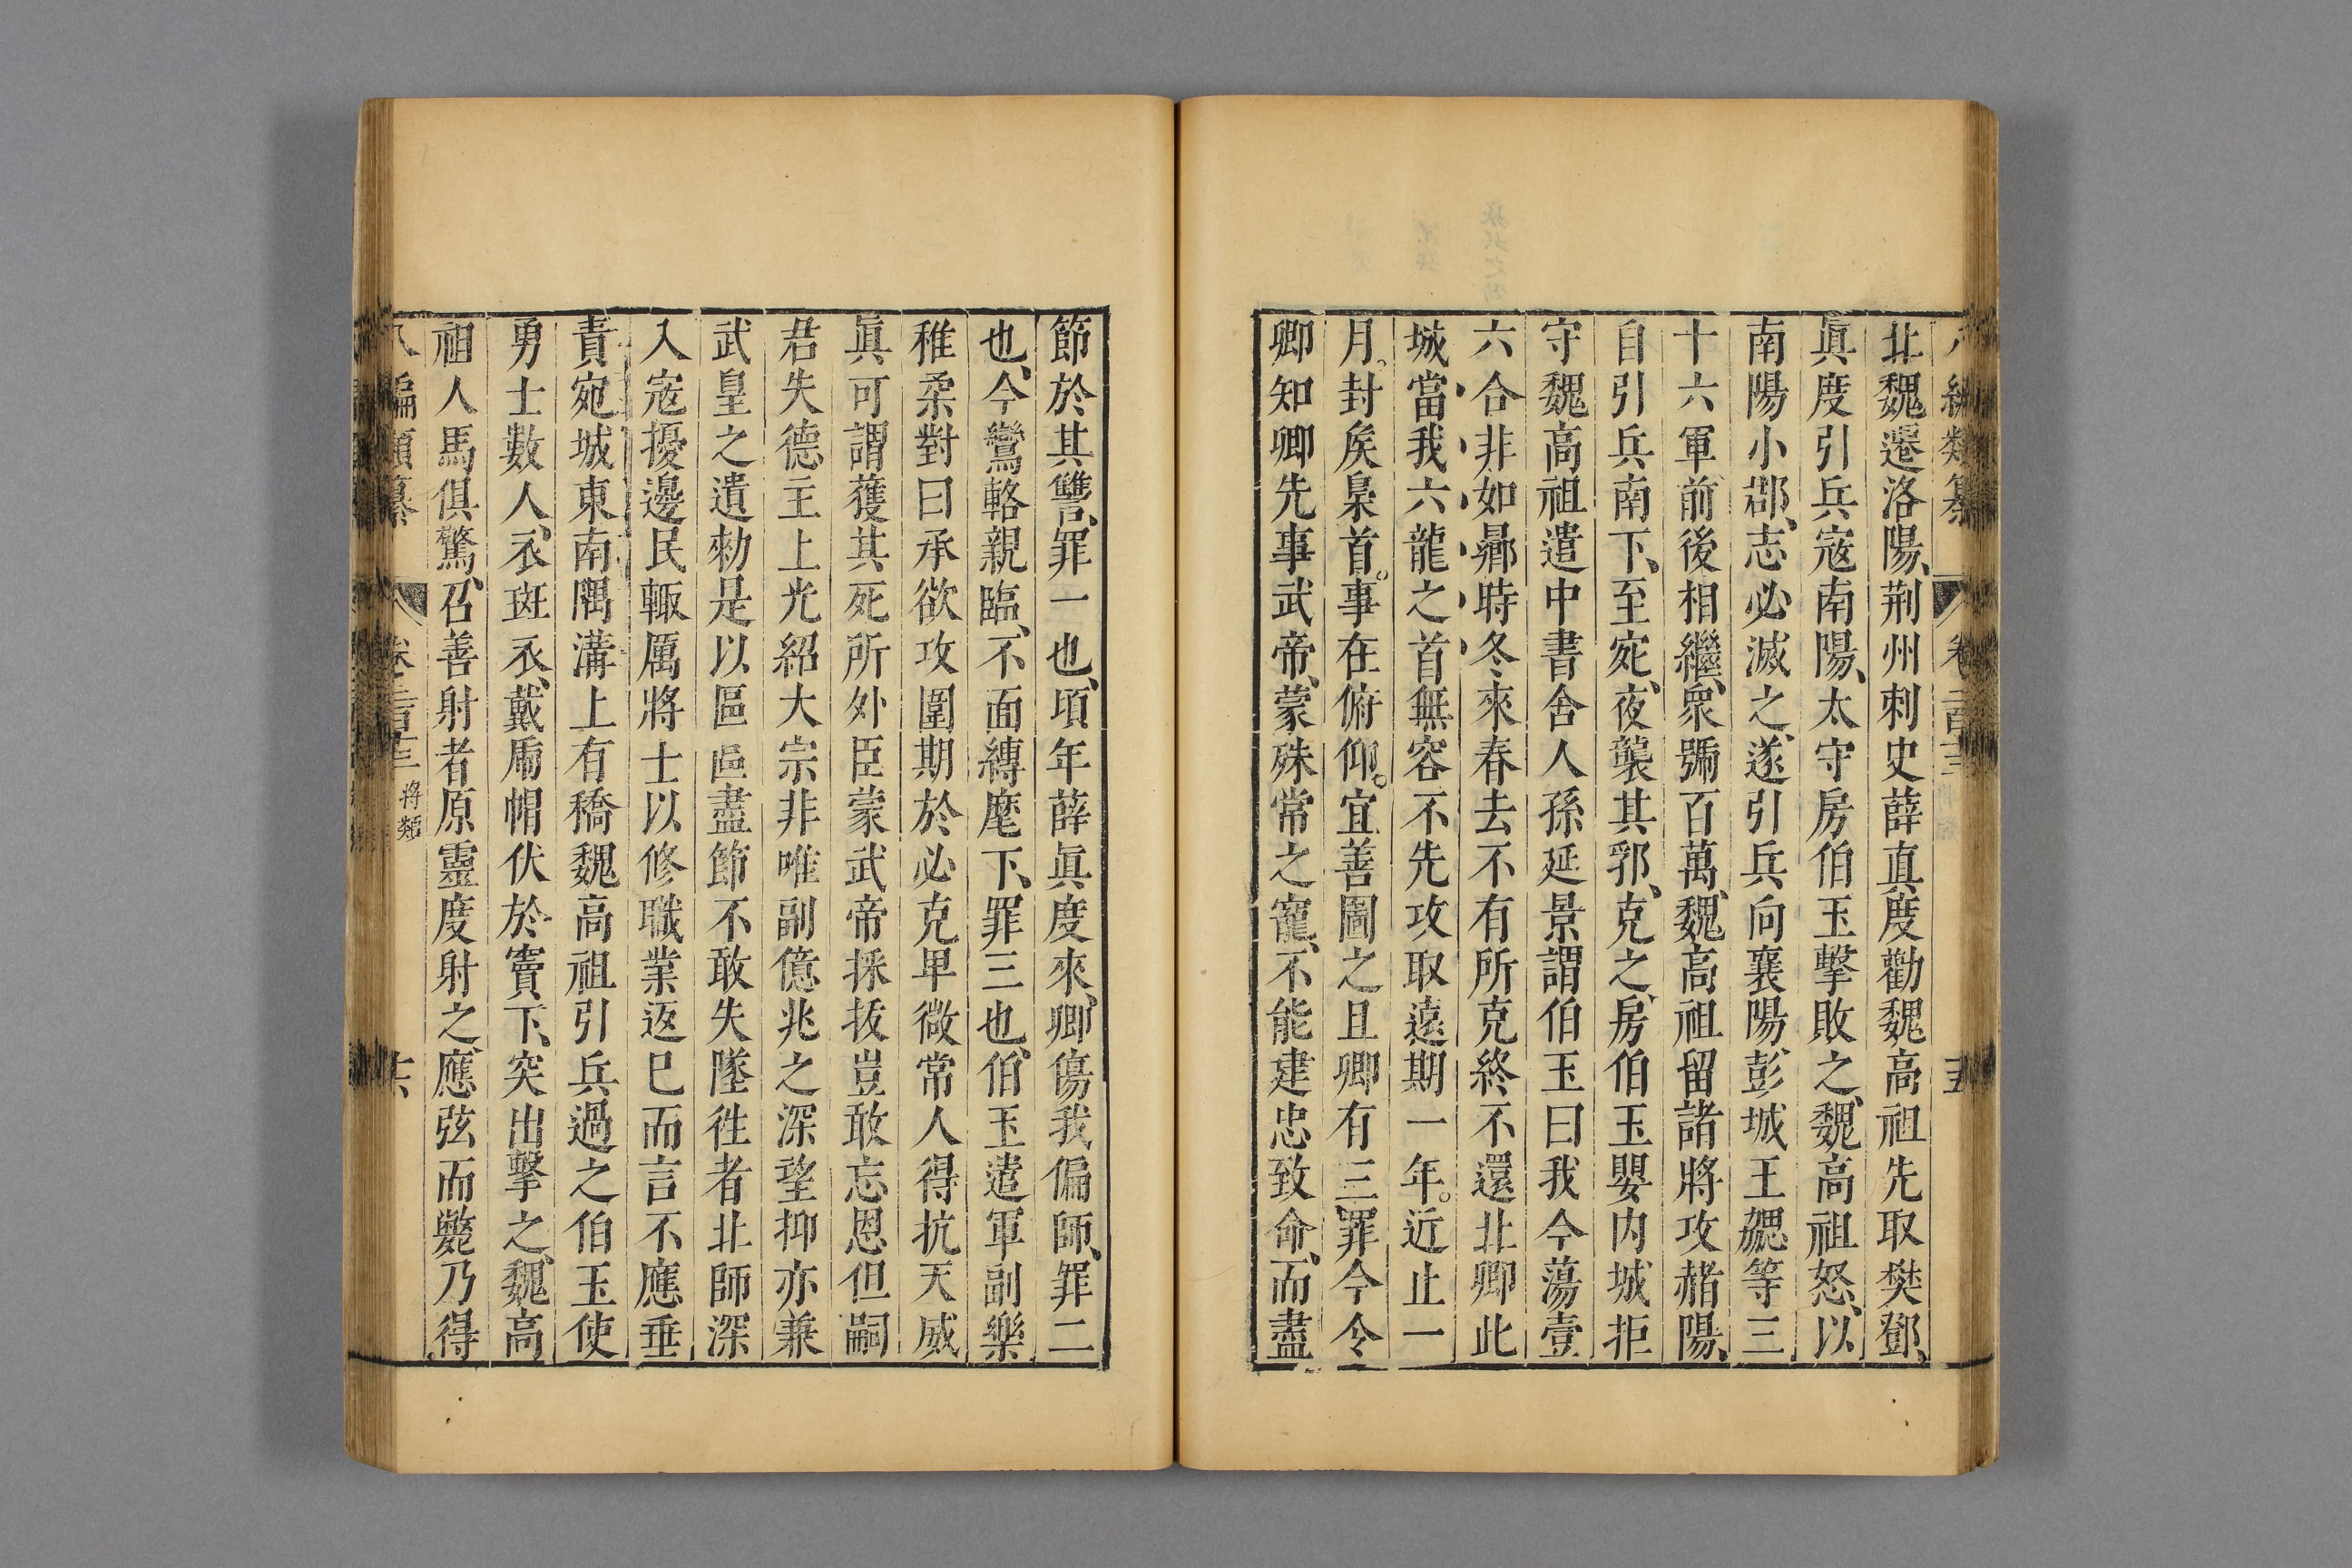 北魏遷洛陽、荆州刺史薛真度勸魏高祖先取樊鄧、
眞度引兵寇南陽、太守房伯玉擊敗之、魏高祖怒、以
南陽小郡、志必滅之、遂引兵向襄陽彭城王勰等三
十六軍前後相繼、衆號百萬、魏高祖留諸將攻赭陽、
自引兵南下、至宛、夜襲其郛、克之、房伯玉嬰内城拒
守魏高祖遣中書舍人孫延景謂伯玉曰我今蕩壹
六合非如曏時冬來春去不有所克終不還北卿此
城當我六龍之首無容不先攻取遠期一年。近止一
月。封矦梟首。事在俯仰。宜善圖之且卿有三罪今令
卿知卿先事武帝、蒙殊常之寵、不能建忠致命、而盡
節於其讐、罪一也、頃年薛眞度來、卿傷我偏師、罪二
也、今鸞輅親臨、不面縛麾下、罪三也、伯玉遣軍副樂
稚柔對曰承欲攻圍期於必克卑微常人得抗天威
眞可謂獲其死所外臣蒙武帝採拔豈敢忘恩但嗣
君失德主上光紹大宗非唯副億兆之深望抑亦兼
武皇之遺勑是以區區盡節不敢失墜徃者北師深
入寇擾邊民輙厲將士以修職業返巳而言不應垂
責宛城東南隅溝上有橋魏高祖引兵過之伯玉使
勇士數人、衣斑衣、戴虎帽伏於竇下、突出擊之、魏高
祖人馬俱驚、召善射者原靈度射之、應弦而斃乃得
將類